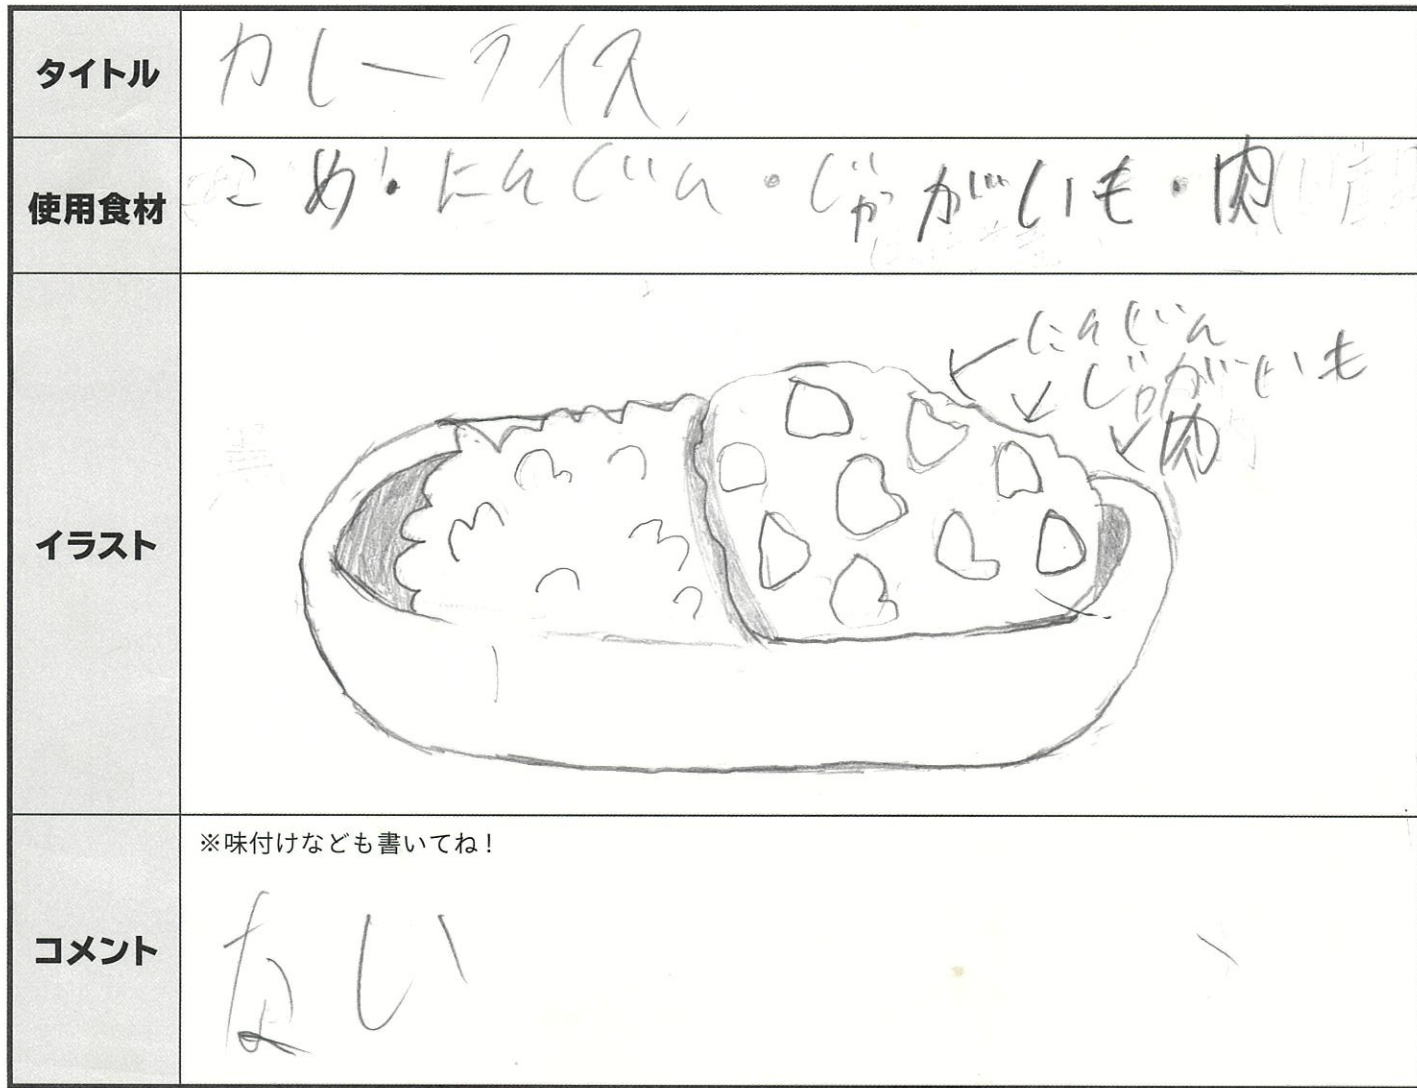 タイトル
カレーライス
使用食材
こめ・にんじん・じゃがいも・肉
イラスト
にんじん
じゃがいも
肉
コメント
※味付けなども書いてね！
ない